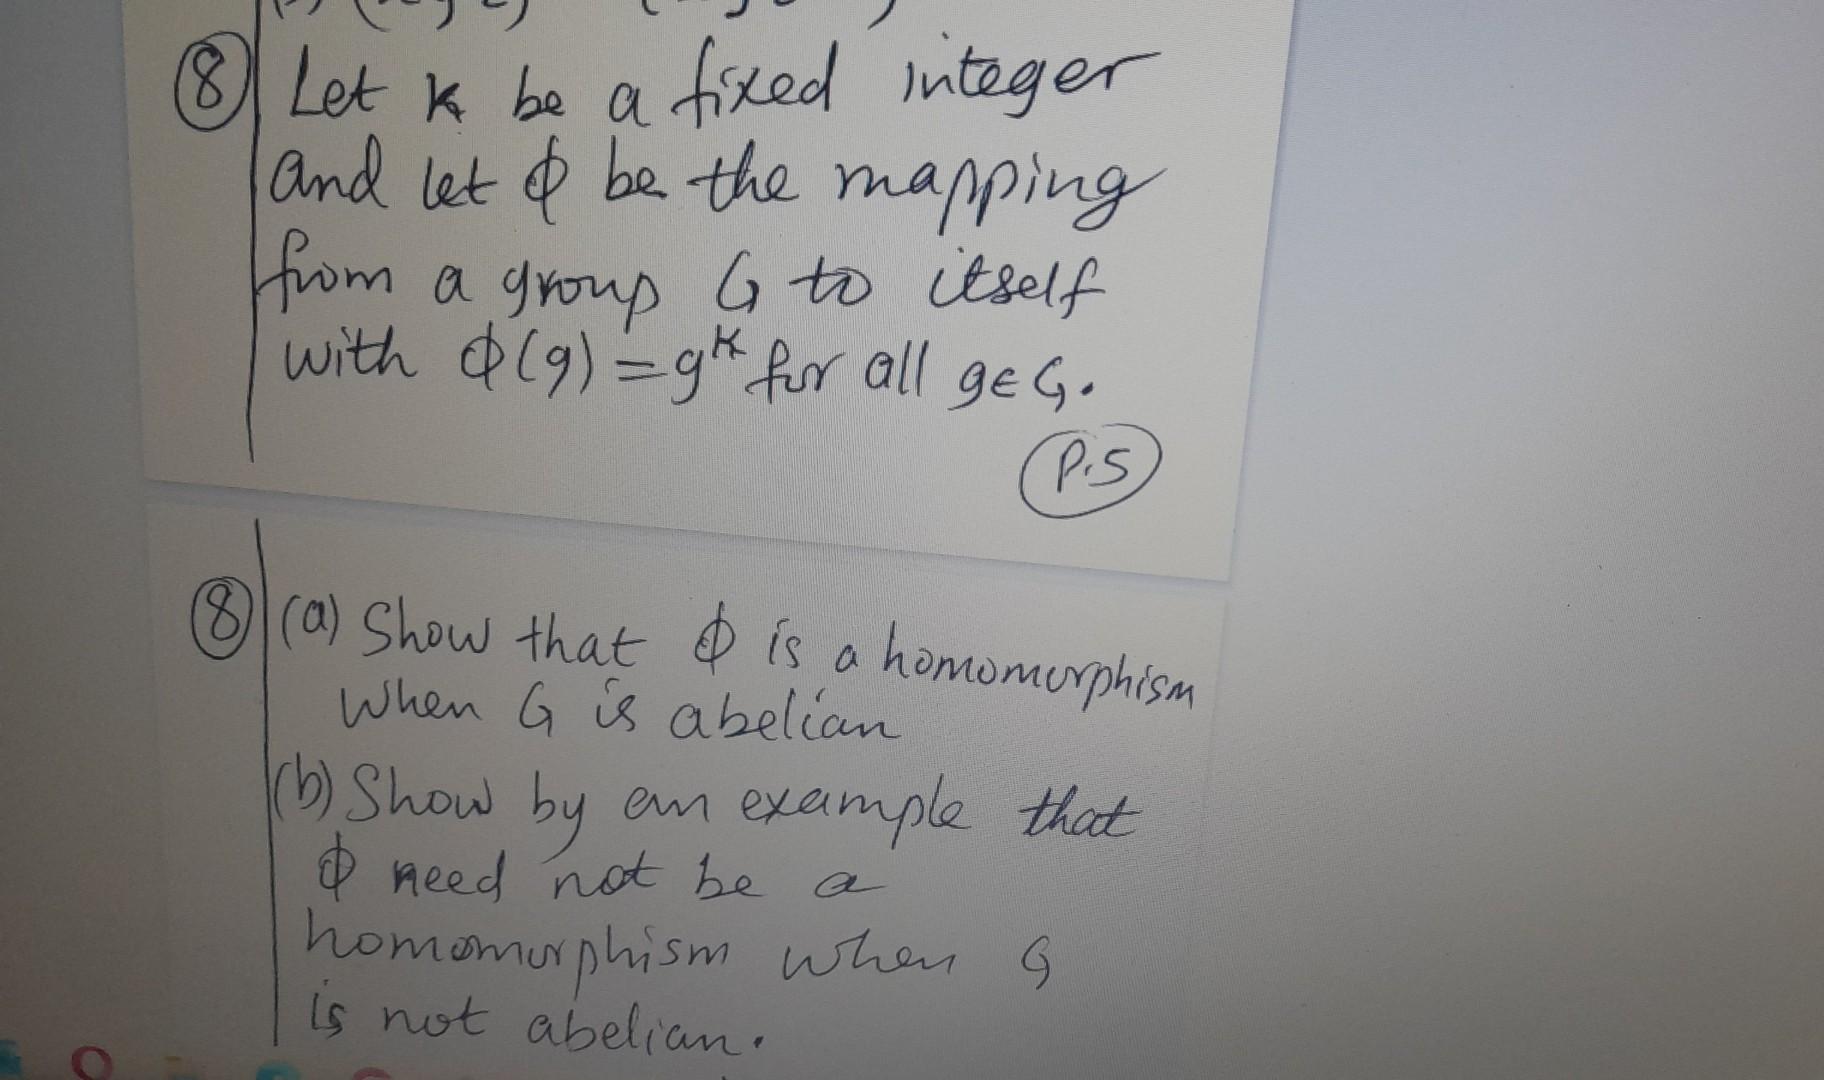 ⑧ Let k be a fixed integer
and let φ be the mapping
from a group G to itself
with φ(g) = g^k for all g∈G.
P.5
⑧ (a) Show that φ is a homomorphism
when G is abelian
(b) Show by an example that
φ need not be a
homomorphism when G
is not abelian.